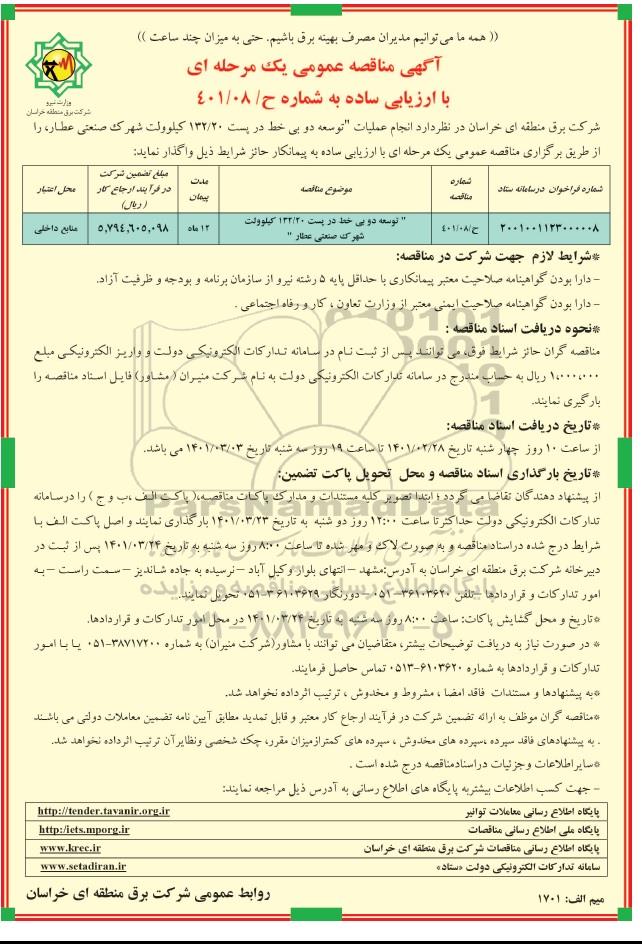 (( همه ما می‌توانیم مدیران مصرف بهینه برق باشیم. حتی به میزان چند ساعت ))
آگهی مناقصه عمومی یک مرحله ای
با ارزیابی ساده به شماره ح/ ٤٠١/٠٨
وزارت نیرو
شرکت برق منطقه ای خراسان
شرکت برق منطقه ای خراسان در نظردارد انجام عملیات "توسعه دو بی خط در پست ۱۳۲/۲۰ کیلوولت شهرک صنعتی عطار، را
از طریق برگزاری مناقصه عمومی یک مرحله ای با ارزیابی ساده به پیمانکار حائز شرایط ذیل واگذار نماید:
شماره فراخوان درسامانه ستاد
شماره مناقصه
موضوع مناقصه
مدت پیمان
مبلغ تضمین شرکت در فرآیند ارجاع کار ( ریال)
محل اعتبار
۲۰۰۱۰۰۱۱۲۳۰۰۰۰۰۸
ح/۴۰۱/۰۸
" توسعه دو بی خط در پست ۱۳۲/۲۰ کیلوولت شهرک صنعتی عطار "
۱۲ ماه
۵,۷۹۴,۶۰۵,۰۹۸
منابع داخلی
*شرایط لازم جهت شرکت در مناقصه:
- دارا بودن گواهینامه صلاحیت معتبر پیمانکاری با حداقل پایه ۵ رشته نیرو از سازمان برنامه و بودجه و ظرفیت آزاد.
- دارا بودن گواهینامه صلاحیت ایمنی معتبر از وزارت تعاون ، کار و رفاه اجتماعی .
*نحوه دریافت اسناد مناقصه :
مناقصه گران حائز شرایط فوق، می توانند پس از ثبت نام در سامانه تدارکات الکترونیکی دولت و واریز الکترونیکی مبلغ
۱,۰۰۰,۰۰۰ ریال به حساب مندرج در سامانه تدارکات الکترونیکی دولت به نام شرکت منیران ( مشاور) فایل اسناد مناقصه را
بارگیری نمایند.
*تاریخ دریافت اسناد مناقصه:
از ساعت ۱۰ روز چهار شنبه تاریخ ۱۴۰۱/۰۲/۲۸ تا ساعت ۱۹ روز سه شنبه تاریخ ۱۴۰۱/۰۳/۰۳ می باشد.
*تاریخ بارگذاری اسناد مناقصه و محل تحویل پاکت تضمین:
از پیشنهاد دهندگان تقاضا می گردد ؛ ابتدا تصویر کلیه مستندات و مدارک پاکات مناقصه،( پاکت الف ،ب و ج ) را درسامانه
تدارکات الکترونیکی دولت حداکثر تا ساعت ۱۲:۰۰ روز دو شنبه به تاریخ ۱۴۰۱/۰۳/۲۳ بارگذاری نمایند و اصل پاکت الف با
شرایط درج شده دراسناد مناقصه و به صورت لاک و مهر شده تا ساعت ۸:۰۰ روز سه شنبه به تاریخ ۱۴۰۱/۰۳/۲۴ پس از ثبت در
دبیرخانه شرکت برق منطقه ای خراسان به آدرس:مشهد –انتهای بلوار وکیل آباد –نرسیده به جاده شاندیز –سمت راست –به
امور تدارکات و قراردادها –تلفن ۳۶۱۰۳۶۲۰-۰۵۱ –دورنگار ۳۶۱۰۳۶۲۹-۰۵۱ تحویل نمایند.
*تاریخ و محل گشایش پاکات: ساعت ۸:۰۰ روز سه شنبه به تاریخ ۱۴۰۱/۰۳/۲۴ در محل امور تدارکات و قراردادها.
* در صورت نیاز به دریافت توضیحات بیشتر، متقاضیان می توانند با مشاور(شرکت منیران) به شماره ۳۸۷۱۷۲۰۰-۰۵۱ یا با امور
تدارکات و قراردادها به شماره ۶۱۰۳۶۲۰-۰۵۱۳ تماس حاصل فرمایند.
*به پیشنهادها و مستندات فاقد امضا ، مشروط و مخدوش ، ترتیب اثرداده نخواهد شد.
*مناقصه گران موظف به ارائه تضمین شرکت در فرآیند ارجاع کار معتبر و قابل تمدید مطابق آیین نامه تضمین معاملات دولتی می باشند
. به پیشنهادهای فاقد سپرده ،سپرده های مخدوش ، سپرده های کمترازمیزان مقرر، چک شخصی ونظایرآن ترتیب اثرداده نخواهد شد.
*سایراطلاعات وجزئیات دراسنادمناقصه درج شده است .
- جهت کسب اطلاعات بیشتربه پایگاه های اطلاع رسانی به آدرس ذیل مراجعه نمایند:
پایگاه اطلاع رسانی معاملات توانیر http://tender.tavanir.org.ir
پایگاه ملی اطلاع رسانی مناقصات http:/iets.mporg.ir
پایگاه اطلاع رسانی مناقصات شرکت برق منطقه ای خراسان www.krec.ir
سامانه تدارکات الکترونیکی دولت «ستاد» www.setadiran.ir
میم الف: ۱۷۰۱
روابط عمومی شرکت برق منطقه ای خراسان
ParsNamadData
پایگاه اطلاع رسانی مناقصه و مزایده
۰۲۱-۸۸۳۴۹۶۷۰-۵